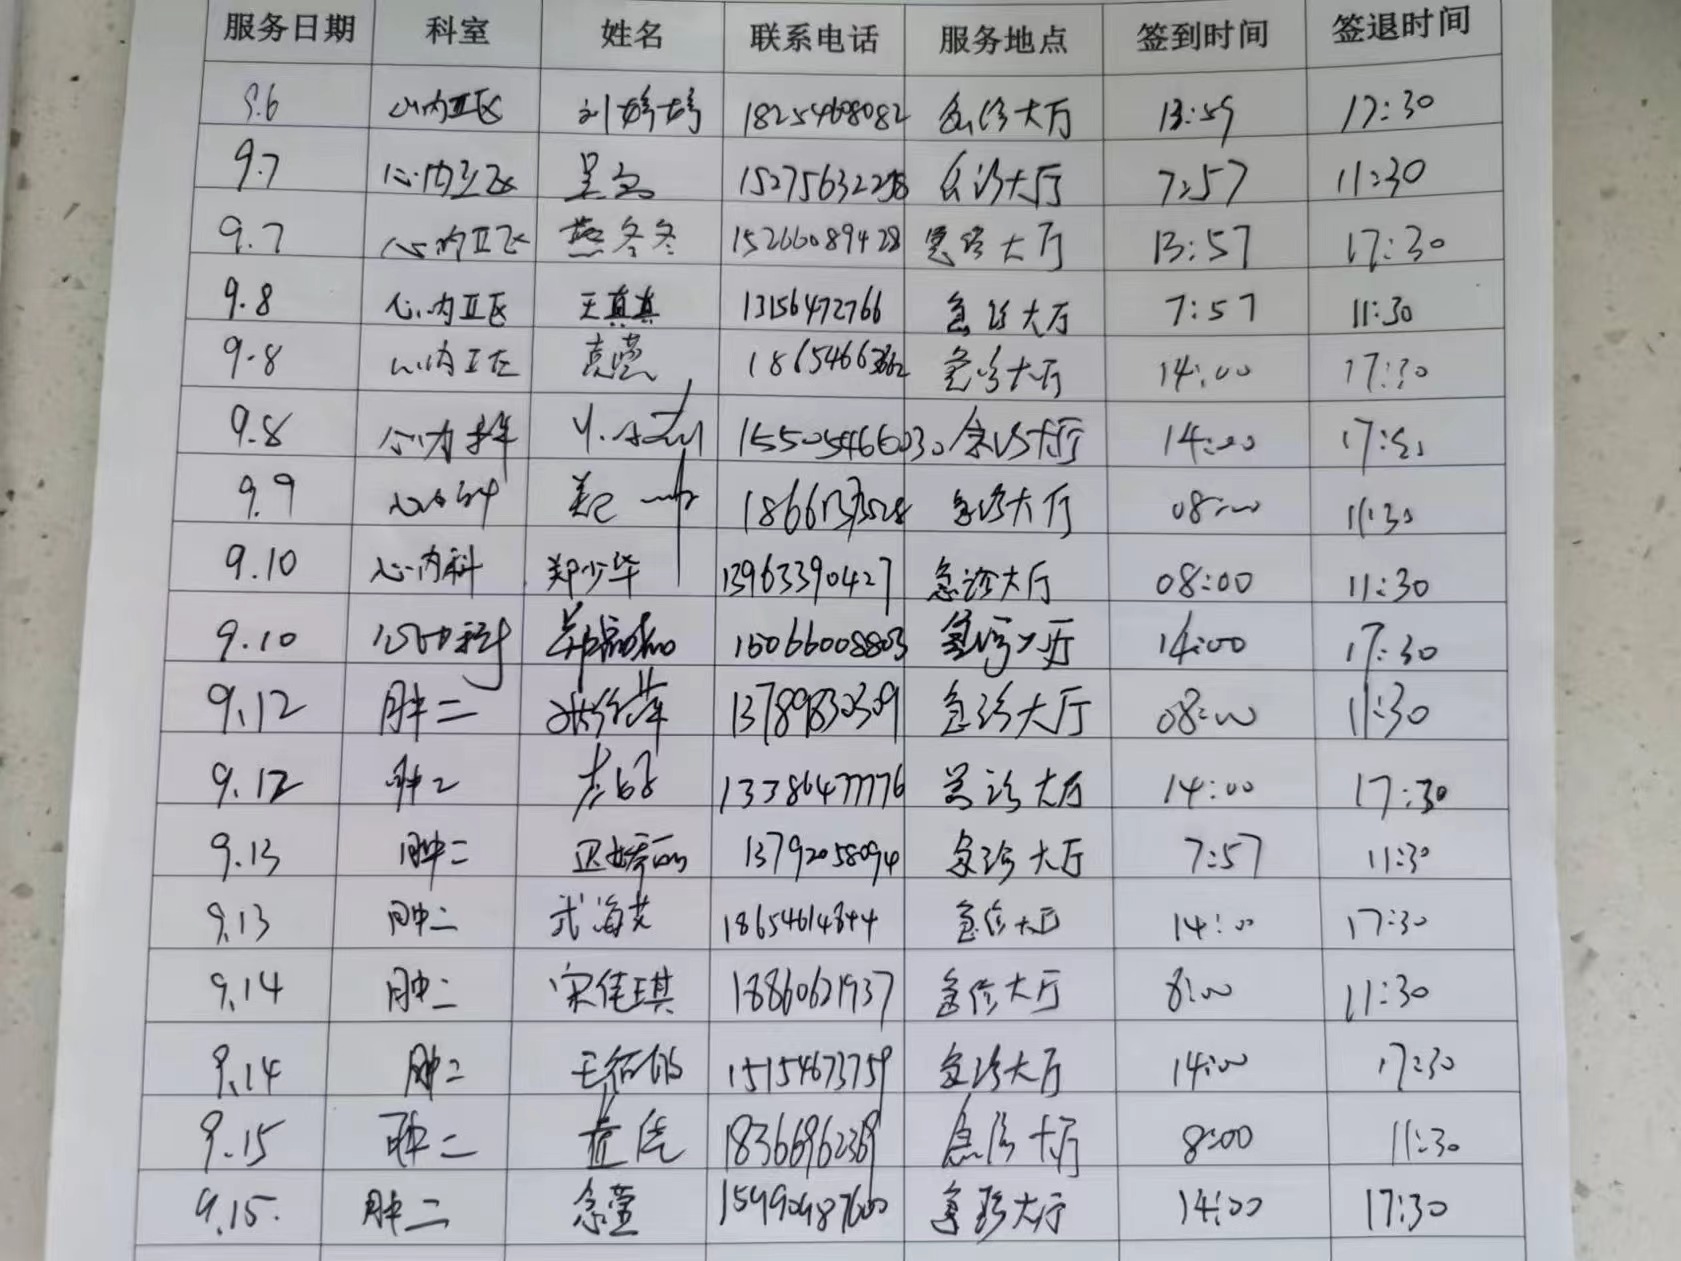 服务日期 科室 姓名 联系电话 服务地点 签到时间 签退时间
9.6 心内五区 刘婷婷 18254608082 急诊大厅 13:59 17:30
9.7 心内五区 急诊大厅 7:57 11:30
9.7 心内五区 燕冬冬 15266089428 急诊大厅 13:57 17:30
9.8 心内五区 王真真 13156472766 急诊大厅 7:57 11:30
9.8 心内五区 急诊大厅 14:00 17:30
9.8 15505466030 急诊大厅 14:00
9.9 急诊大厅 08:00 11:30
9.10 心内科 郑少华 13963390427 急诊大厅 08:00 11:30
9.10 心内科 15066008803 急诊大厅 14:00 17:30
9.12 肿二 急诊大厅 08:00 11:30
9.12 肿二 急诊大厅 14:00 17:30
9.13 肿二 13792058094 急诊大厅 7:57 11:30
9.13 肿二 18654614844 急诊大厅 14:00 17:30
9.14 肿二 宋佳琪 18860621937 急诊大厅 8:00 11:30
9.14 肿二 15154673759 急诊大厅 14:00 17:30
9.15 肿二 急诊大厅 8:00 11:30
9.15. 肿二 急诊大厅 14:00 17:30